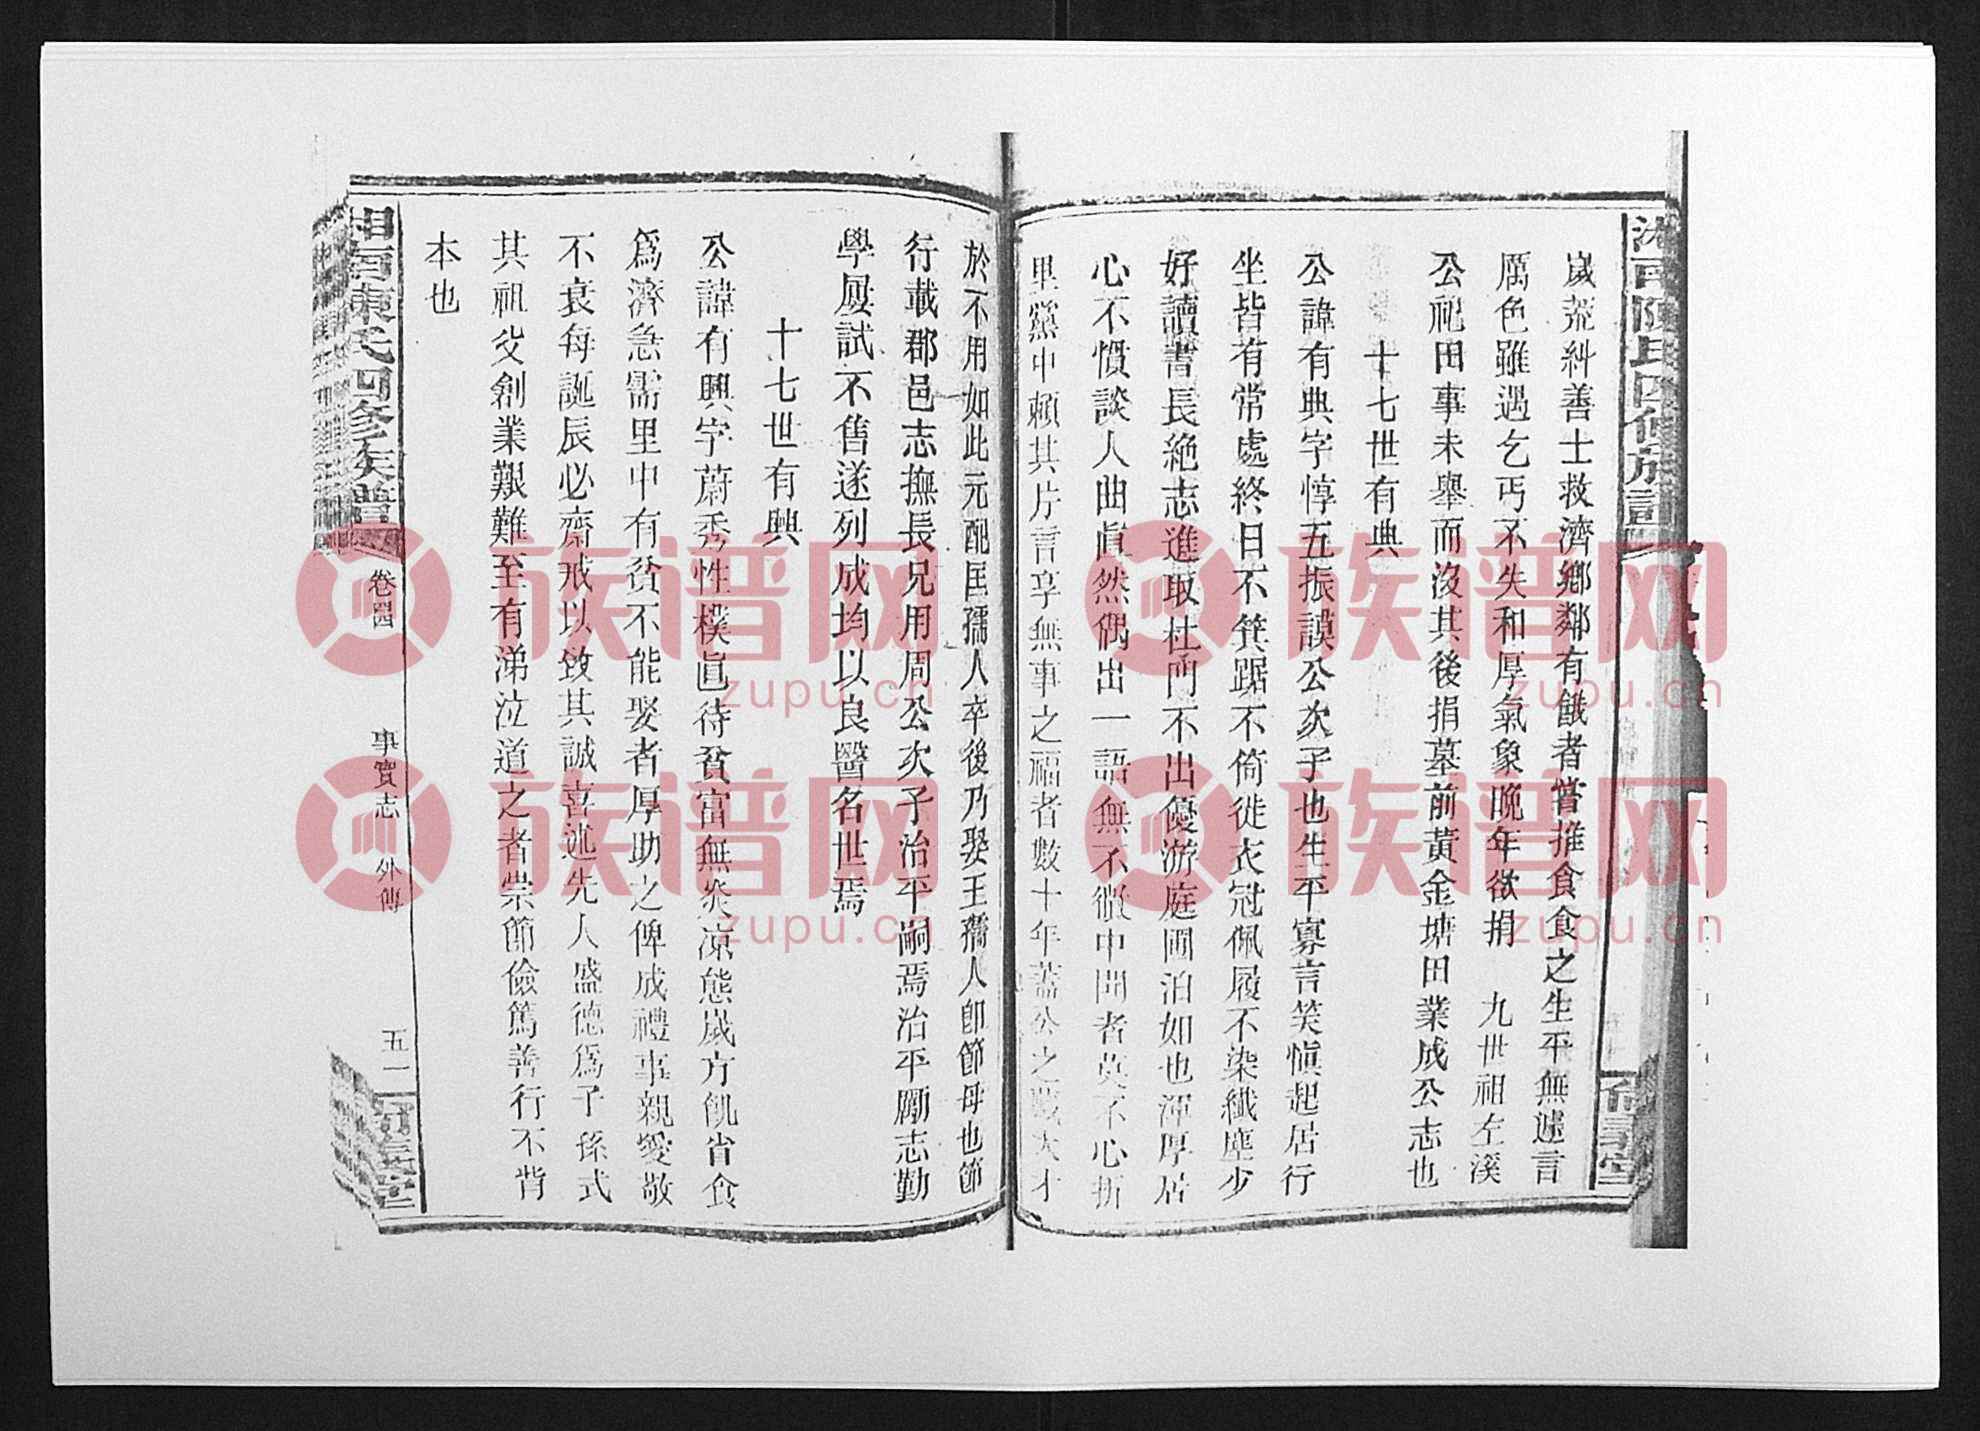 歲荒糾善士救濟鄉鄰有餓者嘗推食食之生平無遽言
厲色雖遇乞丐不失和厚氣象晚年欲捐　九世祖左溪
公祀田事未舉而沒其後捐墓前黃金塘田業成公志也
十七世有典
公諱有典字惇五振謨公次子也生平寡言笑愼起居行
坐皆有常處終日不箕踞不倚徙衣冠佩履不染纖塵少
好讀書長絶志進取杜門不出優游庭圃泊如也渾厚居
心不慣談人曲眞然偶出一語無不微中聞者莫不心折
里黨中賴其片言享無事之福者數十年蓋公之
於不用如此元配匡孺人卒後乃娶王孺人卽節母也節
行載郡邑志撫長兄用周公次子治平嗣焉治平勵志勤
學屢試不售遂列成均以良醫名世焉
十七世有興
公諱有興字蔚秀性樸眞待貧富無炎凉態歲方飢省食
爲濟急需里中有貧不能娶者厚助之俾成禮事親愛敬
不衰每誕辰必齋戒以致其誠喜述先人盛德爲子孫式
其祖父創業艱難至有涕泣道之者崇節儉篤善行不背
本也
湘西陳氏四修族譜
卷四
事實志
外傳
五一
族谱网
zupu.cn
族谱网
zupu.cn
族谱网
zupu.cn
族谱网
zupu.cn